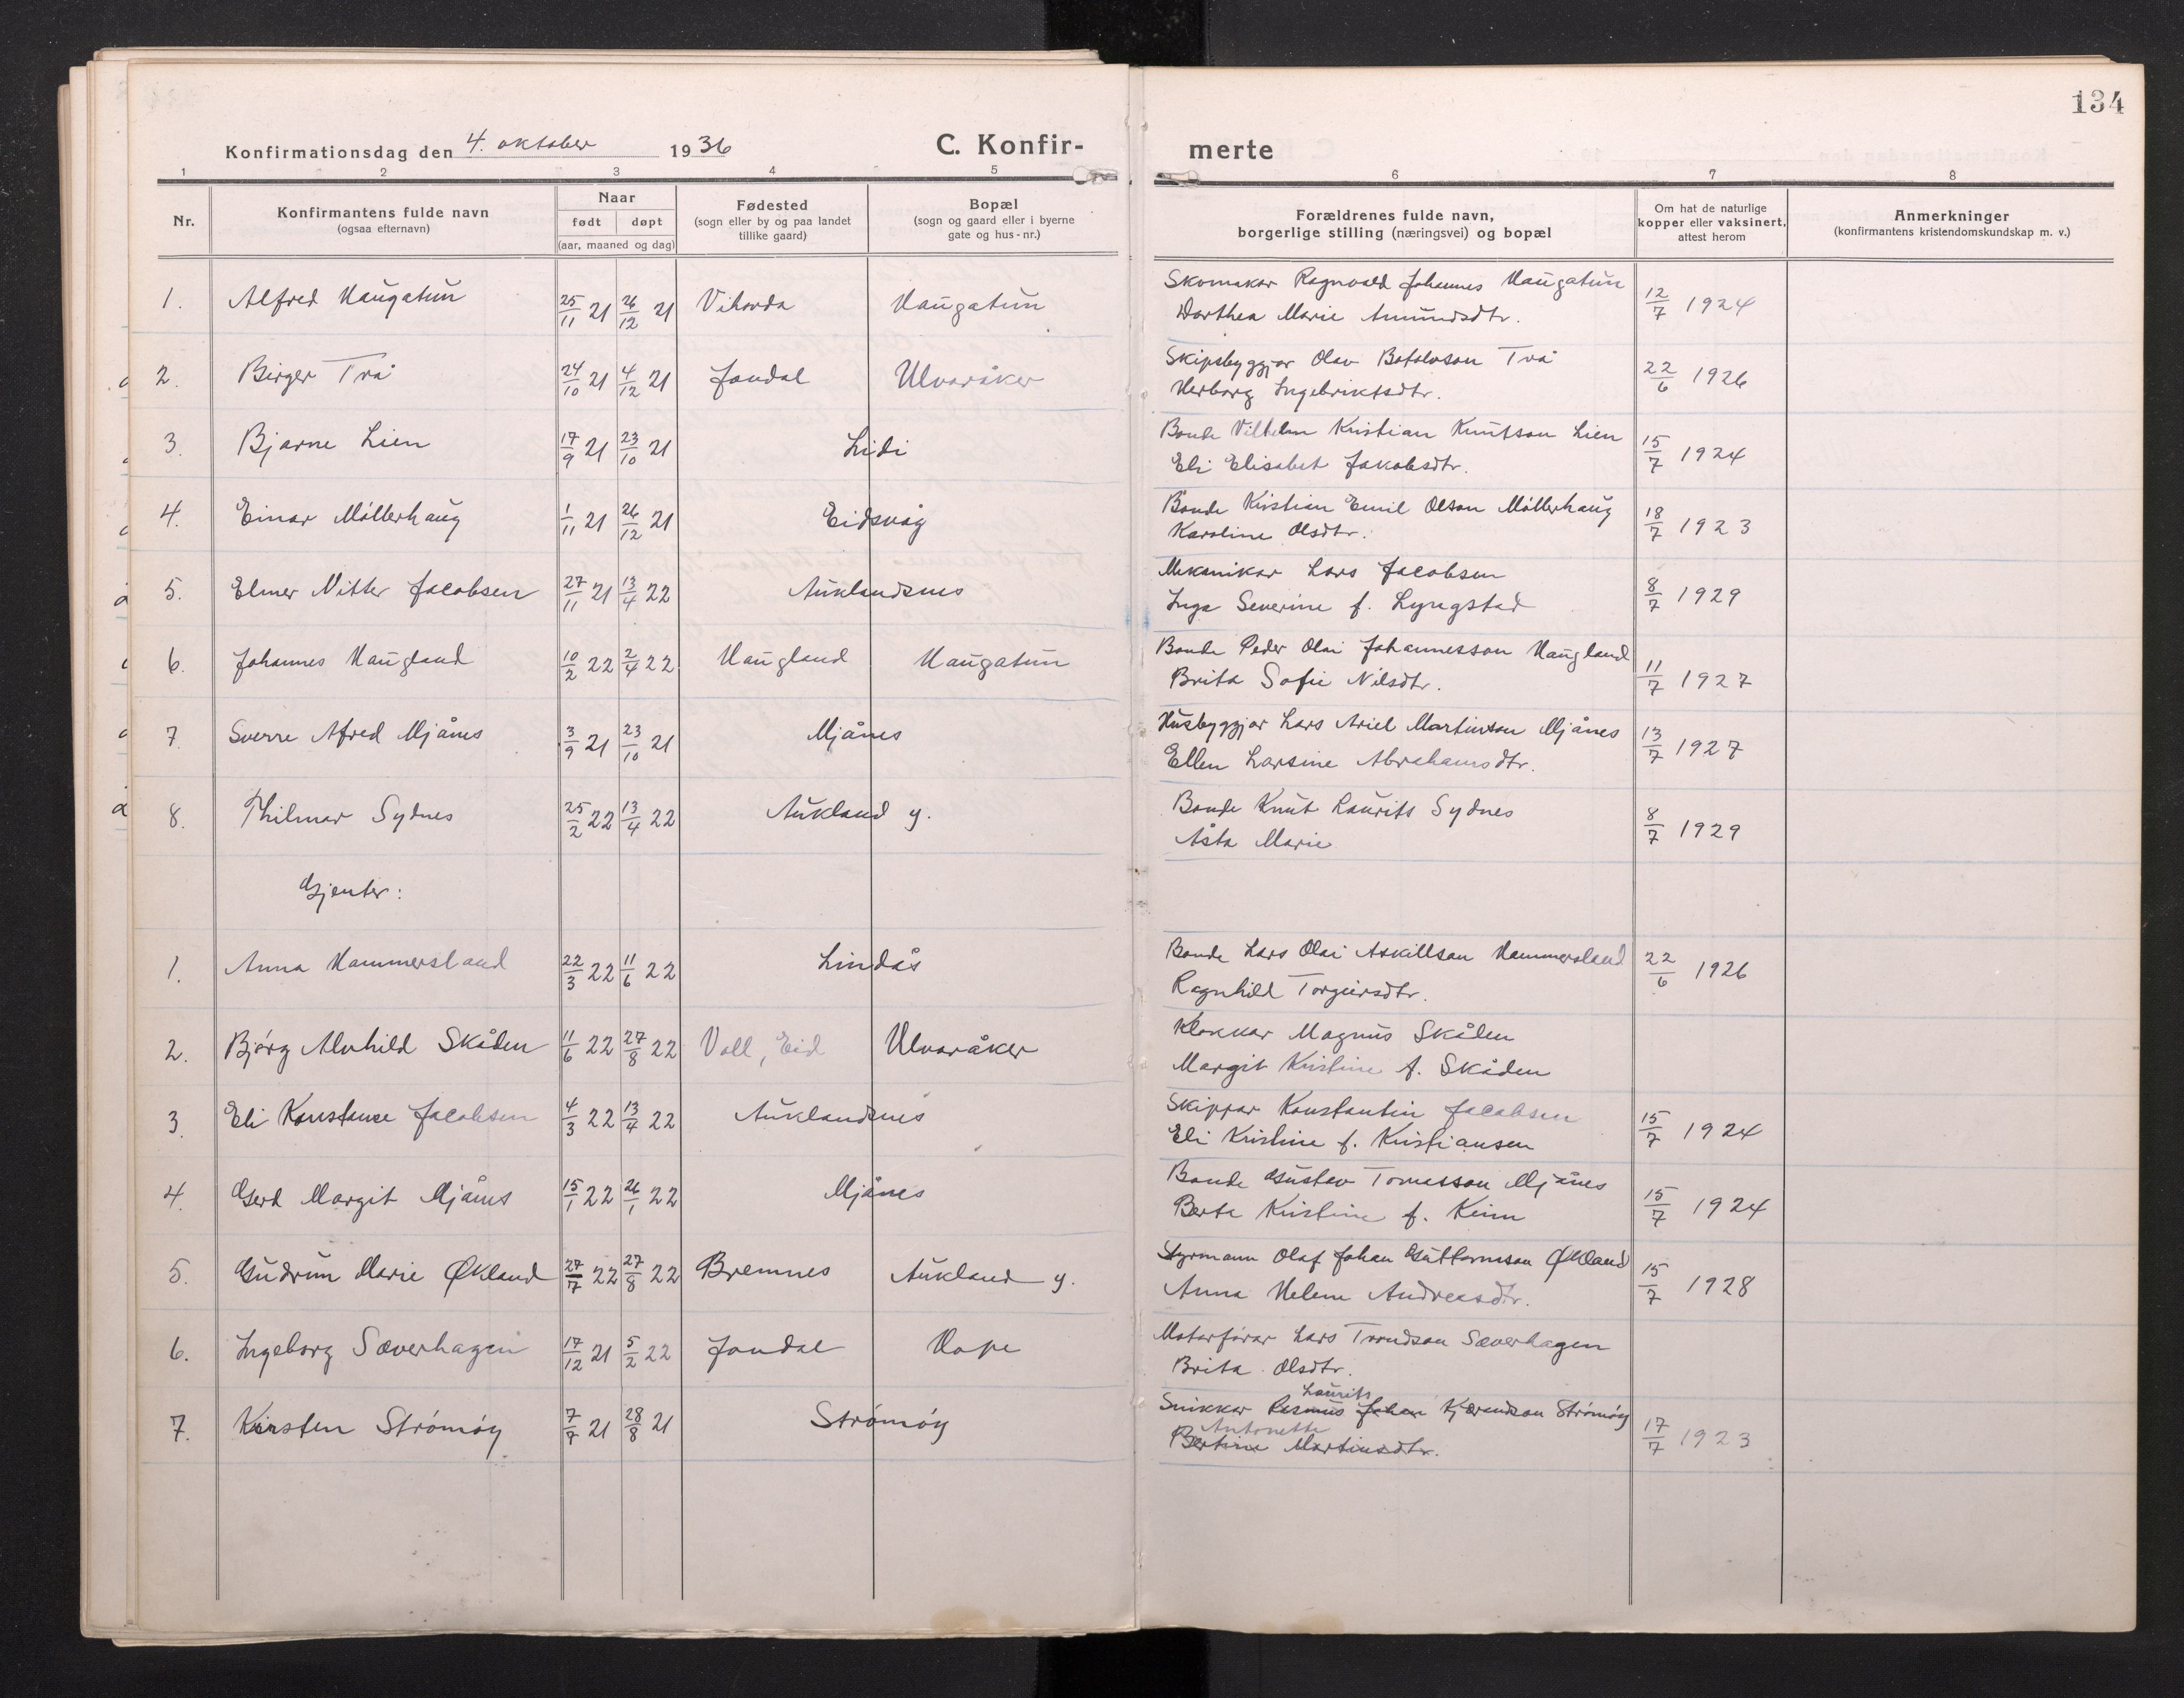 134
Konfirmationsdag den 4. oktober 1936 C. Konfir- merte
1 2 3 4 5 6 7 8
Nr. Konfirmantens fulde navn (ogsaa efternavn) Naar født døpt (aar, maaned og dag) Fødested (sogn eller by og paa landet tillike gaard) Bopæl (sogn og gaard eller i byerne gate og hus-nr.) Forældrenes fulde navn, borgerlige stilling (næringsvei) og bopæl Om hat de naturlige kopper eller vaksinert, attest herom Anmerkninger (konfirmantens kristendomskundskap m. v.)
1. Alfred Haugatun 25/11 21 26/12 21 Vikanda Haugatun Skomakar Ragnvald Johannes Haugatun 12/7 1924
Dorthea Marie Amundsdtr.
2. Birger Trå 24/10 21 4/12 21 Jondal Ulvaråker Skipsbyggjar Olav Botolvson Trå 22/6 1926
Herborg Ingebriktsdtr.
3. Bjarne Lien 17/9 21 23/10 21 Lidi Bonde Vilhelm Kristian Knutson Lien 15/7 1924
Eli Elisabet Jakobsdtr.
4. Einar Møllerhaug 1/11 21 26/12 21 Eidsvåg Bonde Kristian Emil Olson Møllerhaug 18/7 1923
Karoline Olsdtr.
5. Elmer Nitter Jacobsen 27/11 21 13/4 22 Auklandsnes Mekanikar Lars Jacobsen 8/7 1929
Inga Severine f. Lyngstad
6. Johannes Haugland 10/2 22 2/4 22 Haugland Haugatun Bonde Peder Olai Johannesson Haugland 11/7 1927
Brita Sofie Nilsdtr.
7. Sverre Afred Mjånes 3/9 21 23/10 21 Mjånes Husbyggjar Lars Ariel Martinson Mjånes 13/7 1927
Ellen Larsine Abrahamsdtr.
8. Thilmar Sydnes 25/2 22 13/4 22 Aukland y. Bonde Knut Laurits Sydnes 8/7 1929
Åsta Marie
Gjenter:
1. Anna Hammersland 22/3 22 11/6 22 Lindås Bonde Lars Olai Askillson Hammersland 22/6 1926
Ragnhild Torgeirsdtr.
2. Bjørg Alvhild Skåden 11/6 22 27/8 22 Voll, Eid Ulvaråker Klokkar Magnus Skåden
Margit Kristine f. Skåden
3. Eli Konstanse Jacobsen 4/3 22 13/4 22 Auklandsnes Skippar Konstantin Jacobsen 15/7 1924
Eli Kristine f. Kristiansen
4. Gerd Margit Mjånes 15/1 22 26/1 22 Mjånes Bonde Gustav Tomasson Mjånes 15/7 1924
Berta Kristine f. Keim
5. Gudrun Marie Økland 27/7 22 27/8 22 Bremnes Aukland y. Styrmann Olaf Johan Guttormson Økland 15/7 1928
Anna Helene Andreasdtr.
6. Ingeborg Sæverhagen 17/12 21 5/2 22 Jondal Hope Motorførar Lars Trondson Sæverhagen
Brita Olsdtr.
Laurits
7. Kirsten Strømøy 7/7 21 28/8 21 Strømøy Snikkar Rasmus Johan Kjærandson Strømøy 17/7 1923
Antonette
Bertine Martinsdtr.